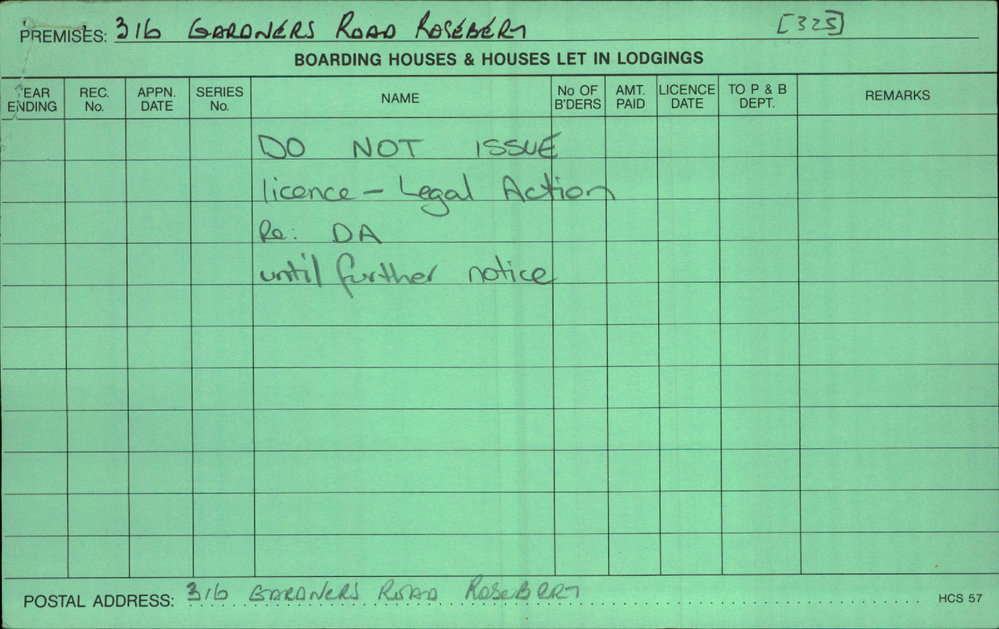 PREMISES: 316 GARDNERS ROAD ROSEBERY [325]
BOARDING HOUSES & HOUSES LET IN LODGINGS
YEAR ENDING REC. No. APPN. DATE SERIES No. NAME No OF B'DERS AMT. PAID LICENCE DATE TO P & B DEPT. REMARKS
DO NOT ISSUE
licence - Legal Action
Re: DA
until further notice
POSTAL ADDRESS: 316 GARDNERS ROAD ROSEBERY HCS 57